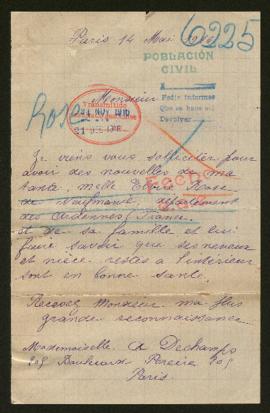 Paris 14 Mai
6225
POBLACIÓN
CIVIL
Monsieur
Pedir informes
Que se hace
Devolver
Transmitido
Rose
Je viens vous solliciter pour
avoir des nouvelles de ma
tante, Melle Elvire Rose
de département
des Ardennes (France)
et de sa famille et lui
faire savoir que ses neveux
et nièce restés à l'intérieur
sont en bonne santé.
Recevez Monsieur ma plus
grande reconnaissance
Mademoiselle A Dechamps
205 Boulevard Pereire 205
Paris